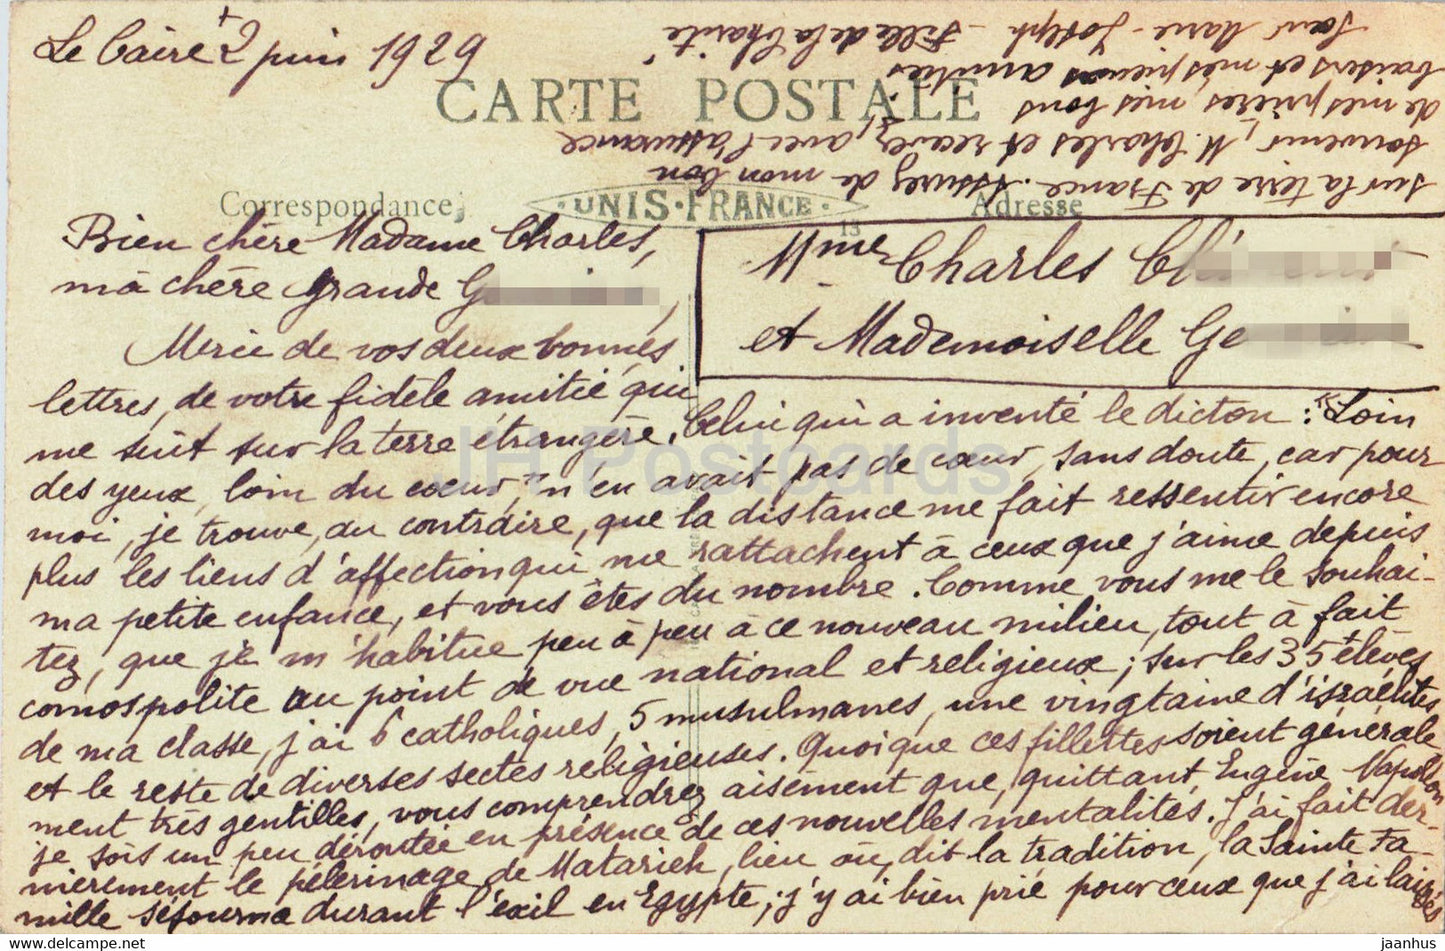 +
Le Caire 2 juin 1929
CARTE POSTALE
Correspondance
UNIS-FRANCE
13
Adresse
Bien chère Madame Charles,
ma chère grande
Mme Charles
et Mademoiselle
Merci de vos deux bonnes
lettres, de votre fidèle amitié qui
me suit sur la terre étrangère. Celui qui a inventé le dicton : "Loin
des yeux, loin du coeur," n'en avait pas de coeur, sans doute, car pour
moi, je trouve, au contraire, que la distance me fait ressentir encore
plus les liens d'affection qui me rattachent à ceux que j'aime depuis
ma petite enfance, et vous êtes du nombre. Comme vous me le souhai-
tez, que je m'habitue peu à peu à ce nouveau milieu, tout à fait
comospolite au point de vue national et religieux ; sur les 35 élèves
de ma classe, j'ai 6 catholiques, 5 musulmanes, une vingtaine d'israélites
et le reste de diverses sectes religieuses. Quoique ces fillettes soient générale
ment très gentilles, vous comprendrez aisément que, quittant Eugène Napoléon
je sois un peu déroutée en présence de ces nouvelles mentalités. J'ai fait der-
nièrement le pèlerinage de Matarieh, lieu où, dit la tradition, la Sainte Fa-
mille séjourna durant l'exil en Egypte ; j'y ai bien prié pour ceux que j'ai laissés
sur la terre de France. Assurez de mon bon
souvenir, M. Charles et recevez, avec l'assurance
de mes prières, mes bons
baisers et mes pieuses amitiés
Soeur Marie-Joseph - Fille de la Charité
JH Postcards
hippostcard.com/jaanhus